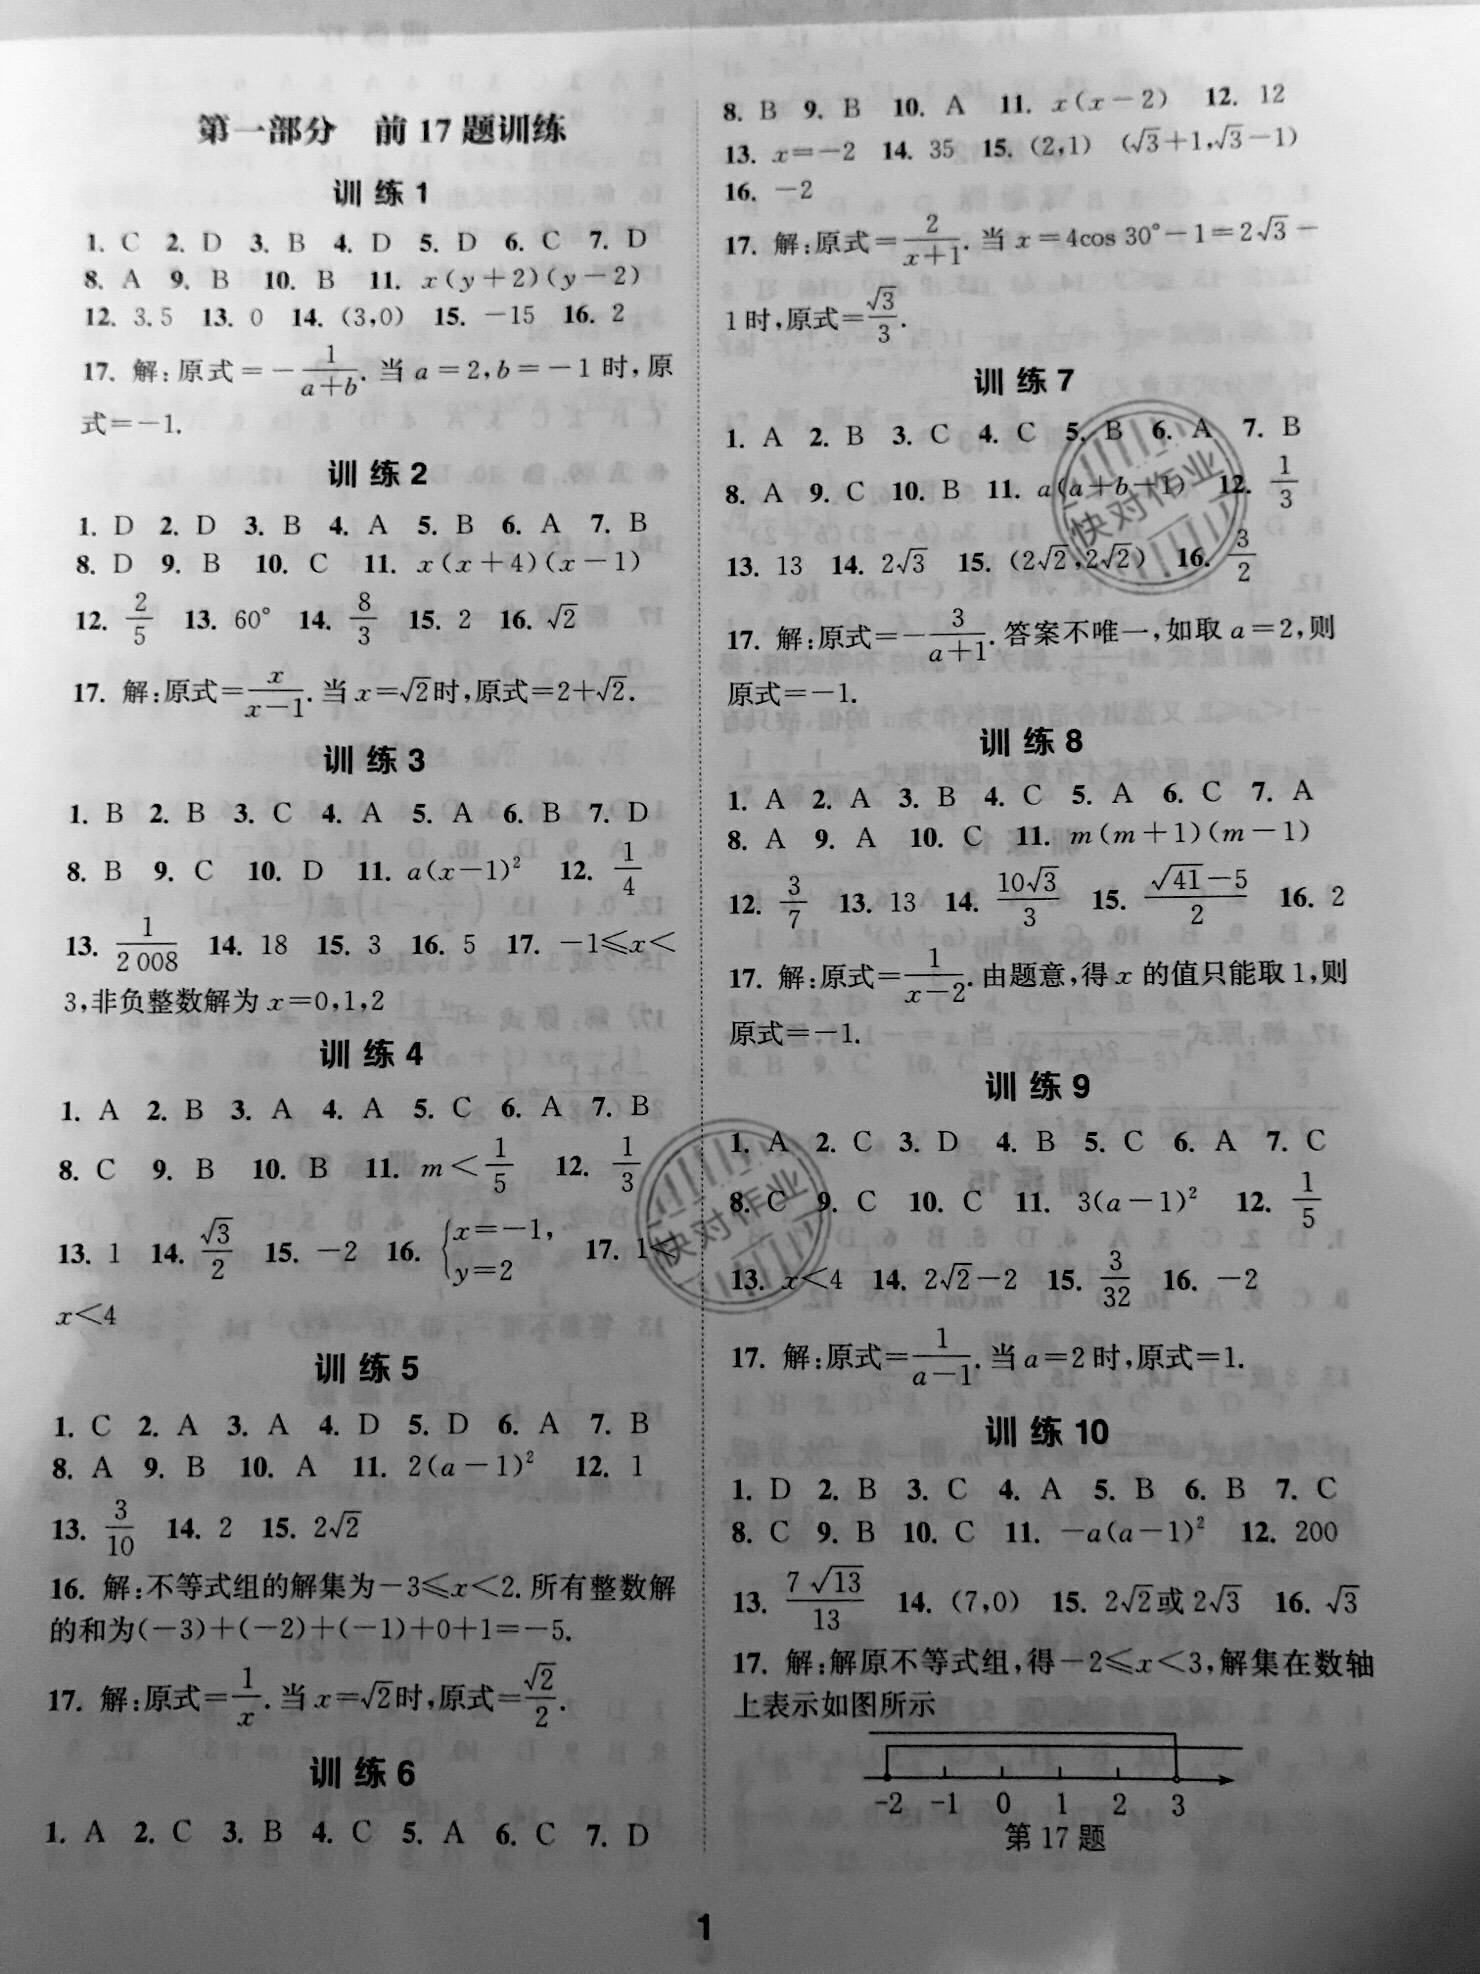 第一部分 前17题训练
训练1
1. C 2. D 3. B 4. D 5. D 6. C 7. D
8. A 9. B 10. B 11. x(y+2)(y-2)
12. 3.5 13. 0 14. (3,0) 15. -15 16. 2
17. 解:原式=-1/(a+b). 当a=2,b=-1时,原
式=-1.
训练2
1. D 2. D 3. B 4. A 5. B 6. A 7. B
8. D 9. B 10. C 11. x(x+4)(x-1)
12. 2/5 13. 60° 14. 8/3 15. 2 16. √2
17. 解:原式=x/(x-1). 当x=√2时,原式=2+√2.
训练3
1. B 2. B 3. C 4. A 5. A 6. B 7. D
8. B 9. C 10. D 11. a(x-1)² 12. 1/4
13. 1/2 008 14. 18 15. 3 16. 5 17. -1⩽x<
3,非负整数解为x=0,1,2
训练4
1. A 2. B 3. A 4. A 5. C 6. A 7. B
8. C 9. B 10. B 11. m<1/5 12. 1/3
13. 1 14. √3/2 15. -2 16. {x=-1, y=2 17. 1⩽
x<4
训练5
1. C 2. A 3. A 4. D 5. D 6. A 7. B
8. A 9. B 10. A 11. 2(a-1)² 12. 1
13. 3/10 14. 2 15. 2√2
16. 解:不等式组的解集为-3⩽x<2. 所有整数解
的和为(-3)+(-2)+(-1)+0+1=-5.
17. 解:原式=1/x. 当x=√2时,原式=√2/2.
训练6
1. A 2. C 3. B 4. C 5. A 6. C 7. D
8. B 9. B 10. A 11. x(x-2) 12. 12
13. x=-2 14. 35 15. (2,1) (√3+1,√3-1)
16. -2
17. 解:原式=2/(x+1). 当x=4cos 30°-1=2√3-
1时,原式=√3/3.
训练7
1. A 2. B 3. C 4. C 5. B 6. A 7. B
8. A 9. C 10. B 11. a(a+b+1) 12. 1/3
13. 13 14. 2√3 15. (2√2,2√2) 16. 3/2
17. 解:原式=-3/(a+1). 答案不唯一,如取a=2,则
原式=-1.
训练8
1. A 2. A 3. B 4. C 5. A 6. C 7. A
8. A 9. A 10. C 11. m(m+1)(m-1)
12. 3/7 13. 13 14. 10√3/3 15. (√41-5)/2 16. 2
17. 解:原式=1/(x-2). 由题意,得x的值只能取1,则
原式=-1.
训练9
1. A 2. C 3. D 4. B 5. C 6. A 7. C
8. C 9. C 10. C 11. 3(a-1)² 12. 1/5
13. x<4 14. 2√2-2 15. 3/32 16. -2
17. 解:原式=1/(a-1). 当a=2时,原式=1.
训练10
1. D 2. B 3. C 4. A 5. B 6. B 7. C
8. C 9. B 10. C 11. -a(a-1)² 12. 200
13. 7√13/13 14. (7,0) 15. 2√2或2√3 16. √3
17. 解:解原不等式组,得-2⩽x<3,解集在数轴
上表示如图所示
-2 -1 0 1 2 3
第17题
1
快对作业
快对作业